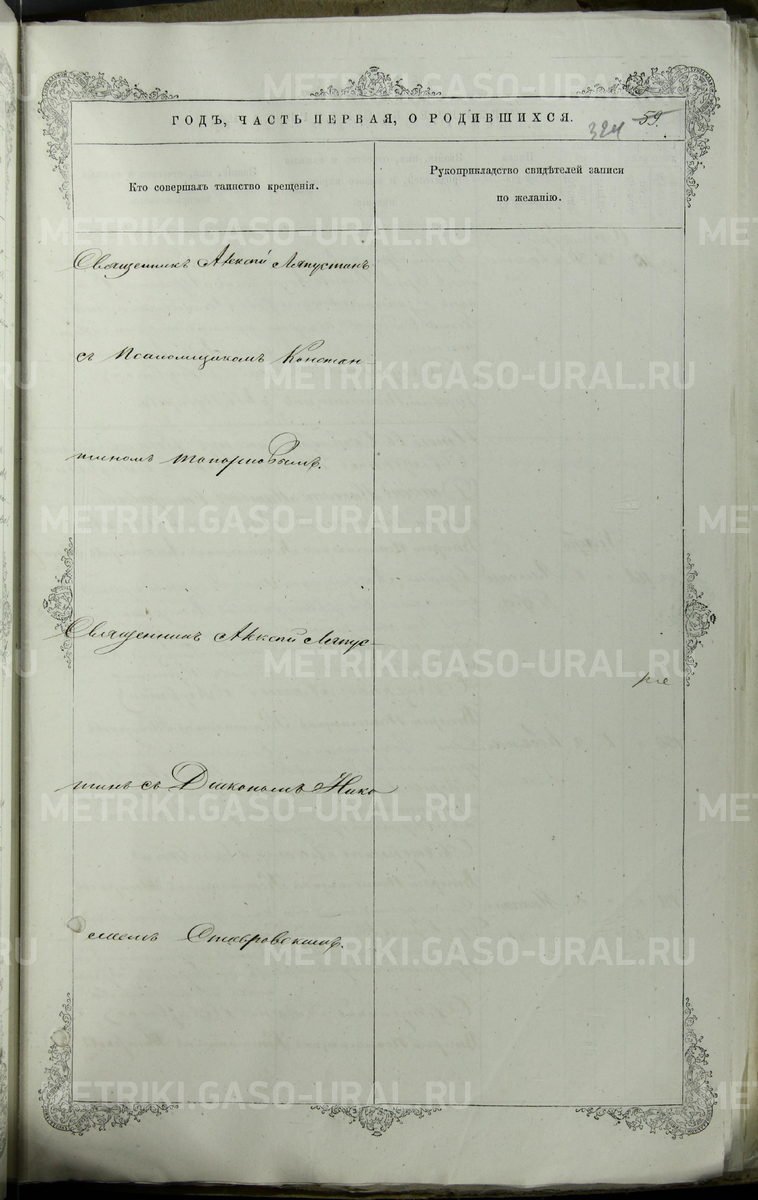 ГОДЪ, ЧАСТЬ ПЕРВАЯ, О РОДИВШИХСЯ.
324 59.
Кто совершалъ таинство крещенія.
Рукоприкладство свидѣтелей записи
по желанію.
Священникъ Алексій Ляпустинъ
съ Псаломщикомъ Констан
тиномъ Топорковымъ.
Священникъ Алексій Ляпус-
тинъ съ Діакономъ Нико
лаемъ Ставровскимъ.
METRIKI.GASO-URAL.RU